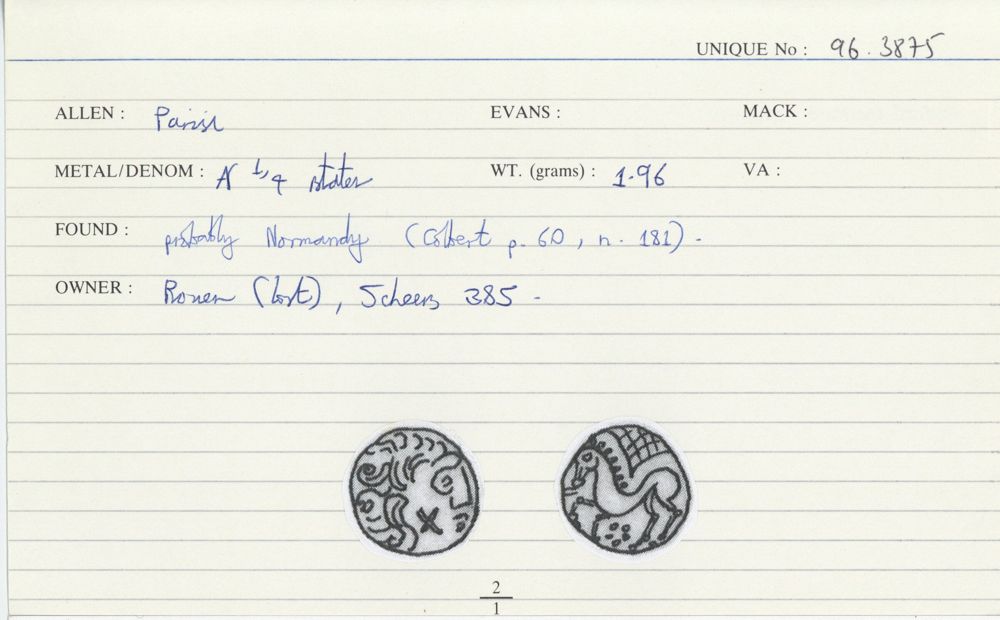 UNIQUE No : 96.3875
ALLEN : Parisii EVANS : MACK :
METAL/DENOM : N 1/4 stater WT. (grams) : 1.96 VA :
FOUND : probably Normandy (Colbert p. 60, n. 181) -
OWNER : Rouen (lost), Scheers 385 -
2
1